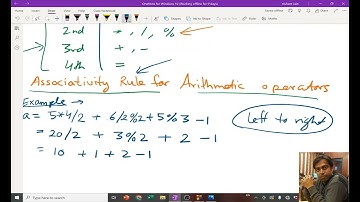 OneNote for Windows 10 (Working offline for 9 days)
2nd = *, /, %
3rd = +, -
4th = =
Associativity Rule for Arithmetic operators
Example →
a = 5*4/2 + 6/2%2+5%3 -1
left to right
= 20/2 + 3%2 + 2 -1
= 10 + 1 + 2 - 1